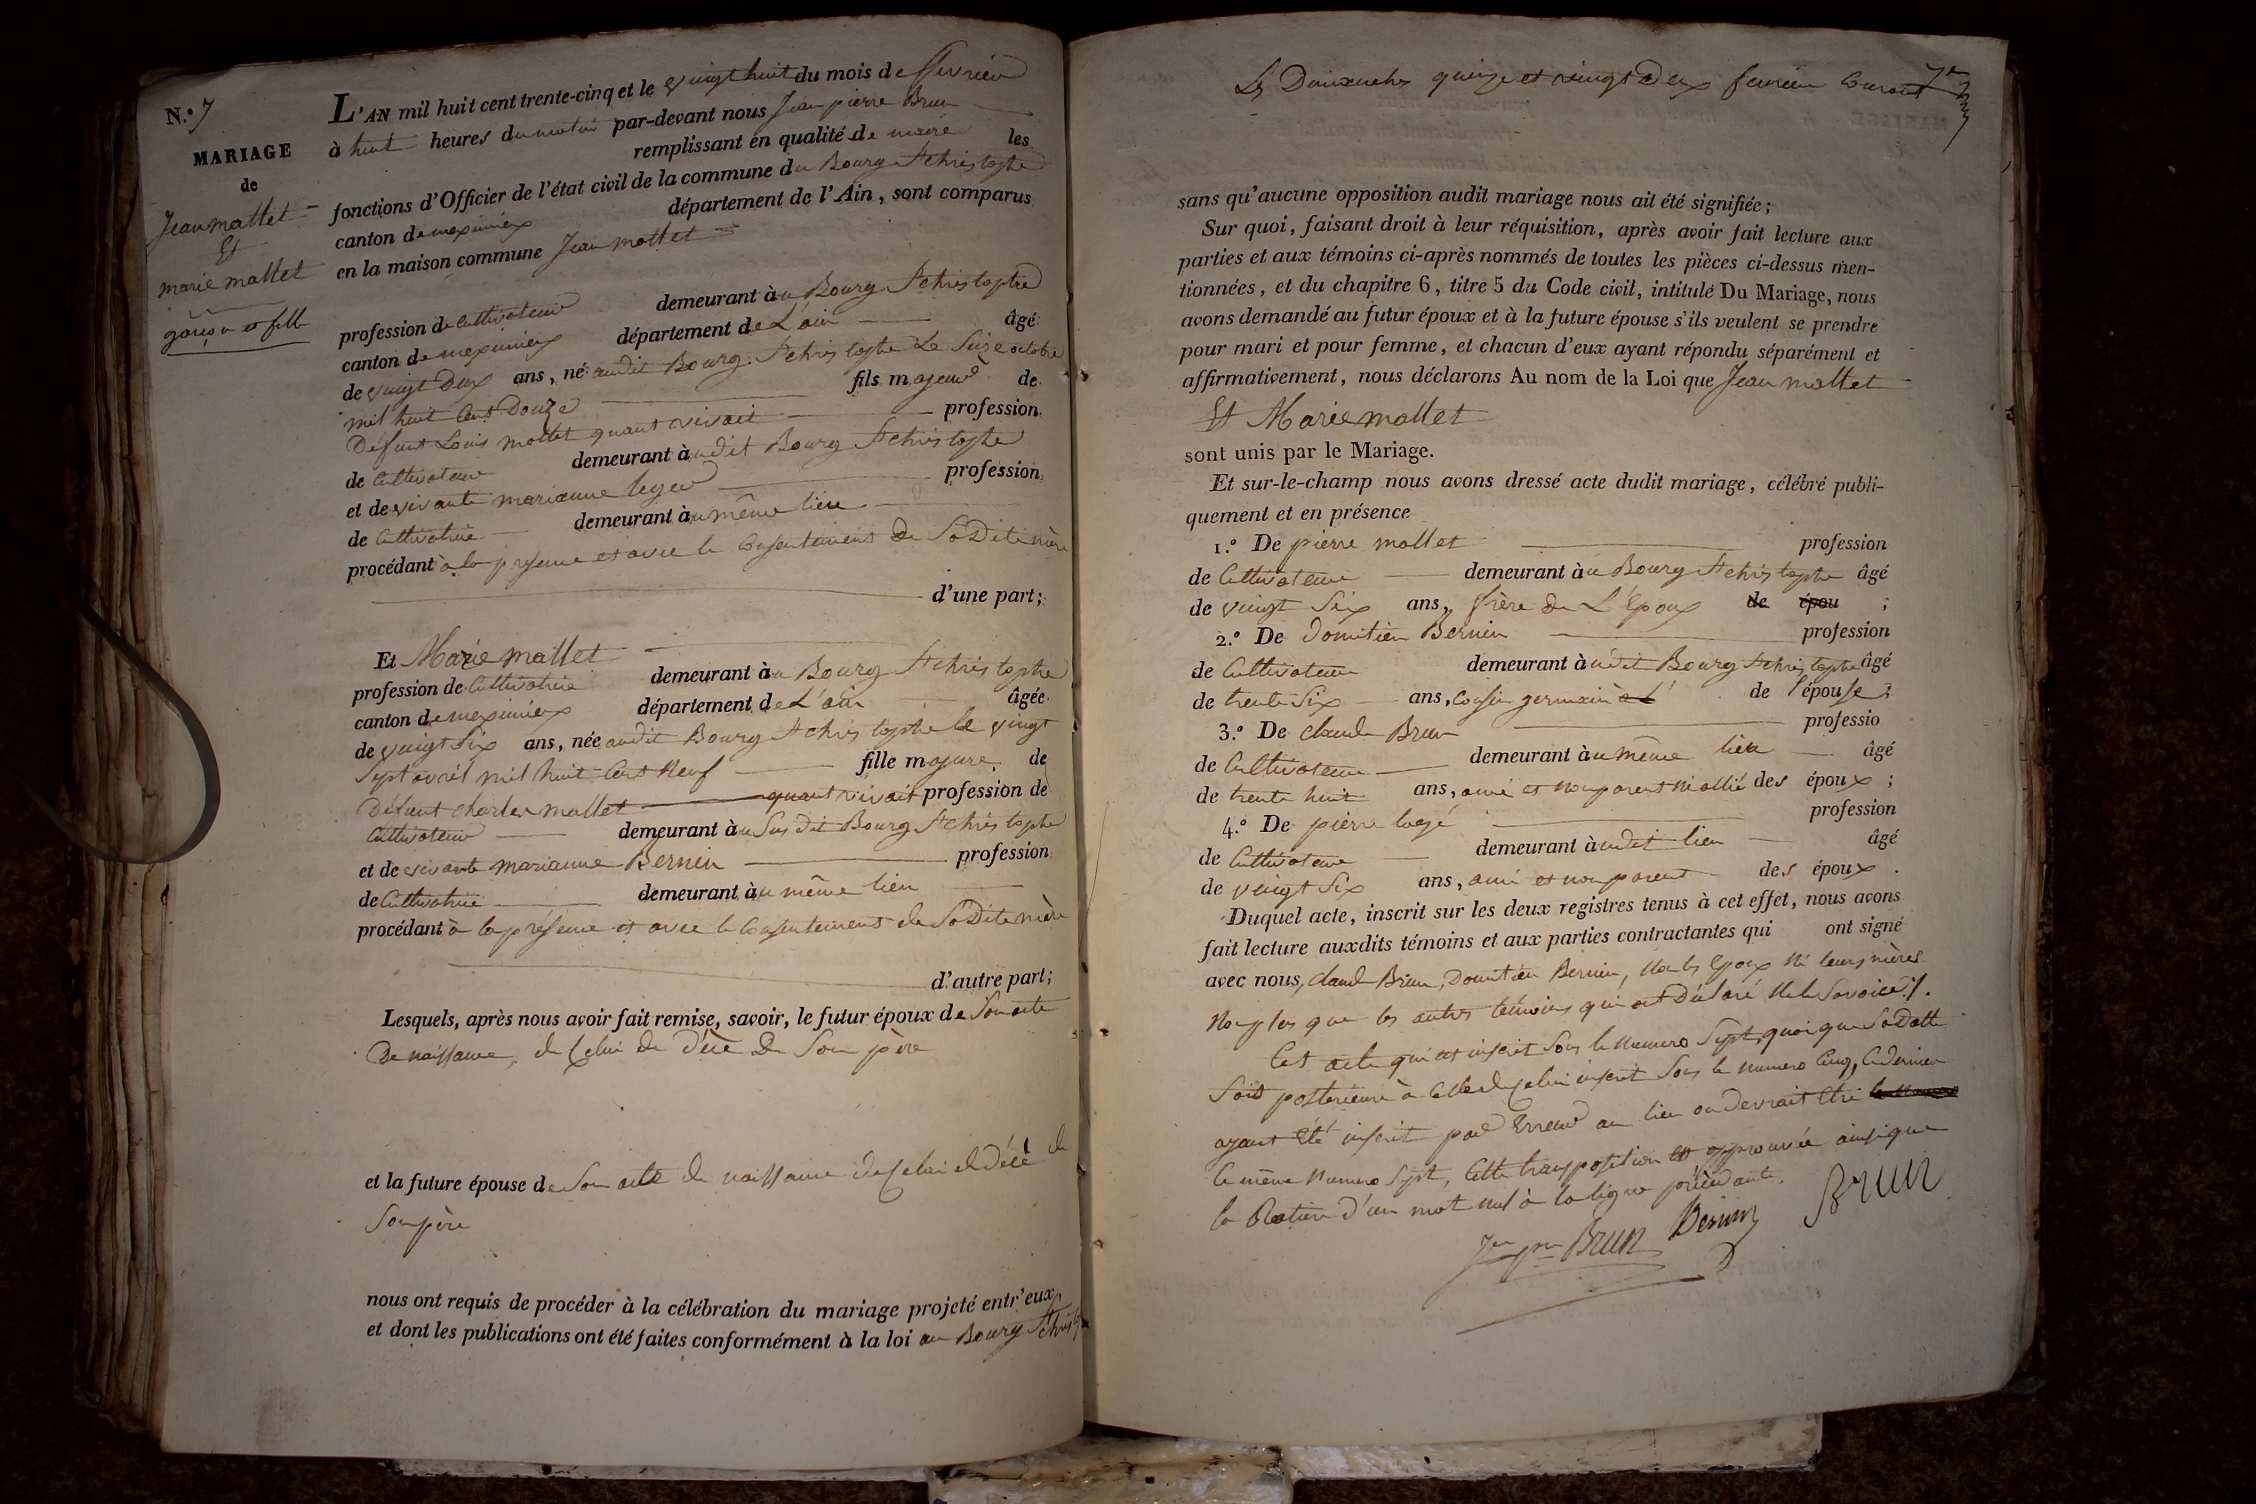 N.º 7
MARIAGE
de
Jean mallet
Et
marie mallet
garçon et fille
L'AN mil huit cent trente-cinq et le vingt huit du mois de fevrier
à huit heures du matin par-devant nous Jean pierre Brun
remplissant en qualité de maire les
fonctions d'Officier de l'état civil de la commune du Bourg St christophe
canton de meximieux département de l'Ain, sont comparus
en la maison commune Jean mollet
profession de Cultivateur demeurant àu Bourg St christophe
canton de meximieux département de L'ain âgé
de vingt Deux ans, né audit Bourg St christophe Le Seize octobre
mil huit Cent Douze fils majeur de
Défunt Louis mollet quant vivait profession
de Cultivateur demeurant àudit Bourg St christophe
et de vivante marianne leger profession
de Cultivatrice demeurant àu même lieu
procédant à la presence et avec le Consentement de Sa Dite mère
d'une part;
Et Marie mallet
profession de Cultivatrice demeurant àu Bourg St christophe
canton de meximieux département de L'ain âgée
de vingt Six ans, née audit Bourg St christophe le vingt
Sept avril mil huit Cent Neuf fille majeure de
Défunt charles mallet quant vivait profession de
Cultivateur demeurant àu Sus dit Bourg St christophe
et de vivante marianne Bernin profession
de Cultivatrice demeurant àu même lieu
procédant à la présence et avec le Consentement de Sa Dite mère
d'autre part;
Lesquels, après nous avoir fait remise, savoir, le futur époux de Son acte
De naissance, de Celui de Décè De Son père
et la future épouse de Son acte de naissance de Celui de Décè de
Son père
nous ont requis de procéder à la célébration du mariage projeté entr'eux,
et dont les publications ont été faites conformément à la loi au Bourg St christophe
Les Dimanches quinze et vingt Deux fevrier Courant
sans qu'aucune opposition audit mariage nous ait été signifiée;
Sur quoi, faisant droit à leur réquisition, après avoir fait lecture aux
parties et aux témoins ci-après nommés de toutes les pièces ci-dessus men-
tionnées, et du chapitre 6, titre 5 du Code civil, intitulé Du Mariage, nous
avons demandé au futur époux et à la future épouse s'ils veulent se prendre
pour mari et pour femme, et chacun d'eux ayant répondu séparément et
affirmativement, nous déclarons Au nom de la Loi que Jean mollet
Et Marie mallet
sont unis par le Mariage.
Et sur-le-champ nous avons dressé acte dudit mariage, célébré publi-
quement et en présence
1.º De pierre mollet profession
de Cultivateur demeurant àu Bourg St christophe âgé
de vingt Six ans, frère de L'Epoux de épou ;
2.º De Domitien Bernin profession
de Cultivateur demeurant àudit Bourg St christophe âgé
de trente Six ans, Cousin germain de l'épouse;
3.º De claude Brun professio
de Cultivateur demeurant àu même lieu âgé
de trente huit ans, ami et non parent ni allié des époux ;
4.º De pierre logé profession
de Cultivateur demeurant àudit lieu âgé
de vingt Six ans, ami et non parent des époux .
Duquel acte, inscrit sur les deux registres tenus à cet effet, nous avons
fait lecture auxdits témoins et aux parties contractantes qui ont signé
avec nous, claude Brun, Domitien Bernin, Non les Epoux Ni leurs mères
Non plus que les autres témoins qui ont Déclaré Ne le Savoir./.
Cet acte qui est inscrit Sous le Numero Sept, quoique Sa Datte
Soit postérieure à Celle de Celui inscrit Sous le numero Cinq, Ce dernier
ayant été inscrit par Erreur au lieu ou devrait Etre
Ce même Numero Sept, Cette transposition est approuvée ainsi que
la Rature d'un mot nul à la ligne précédente.
Jean pre Brun Bernin Brun